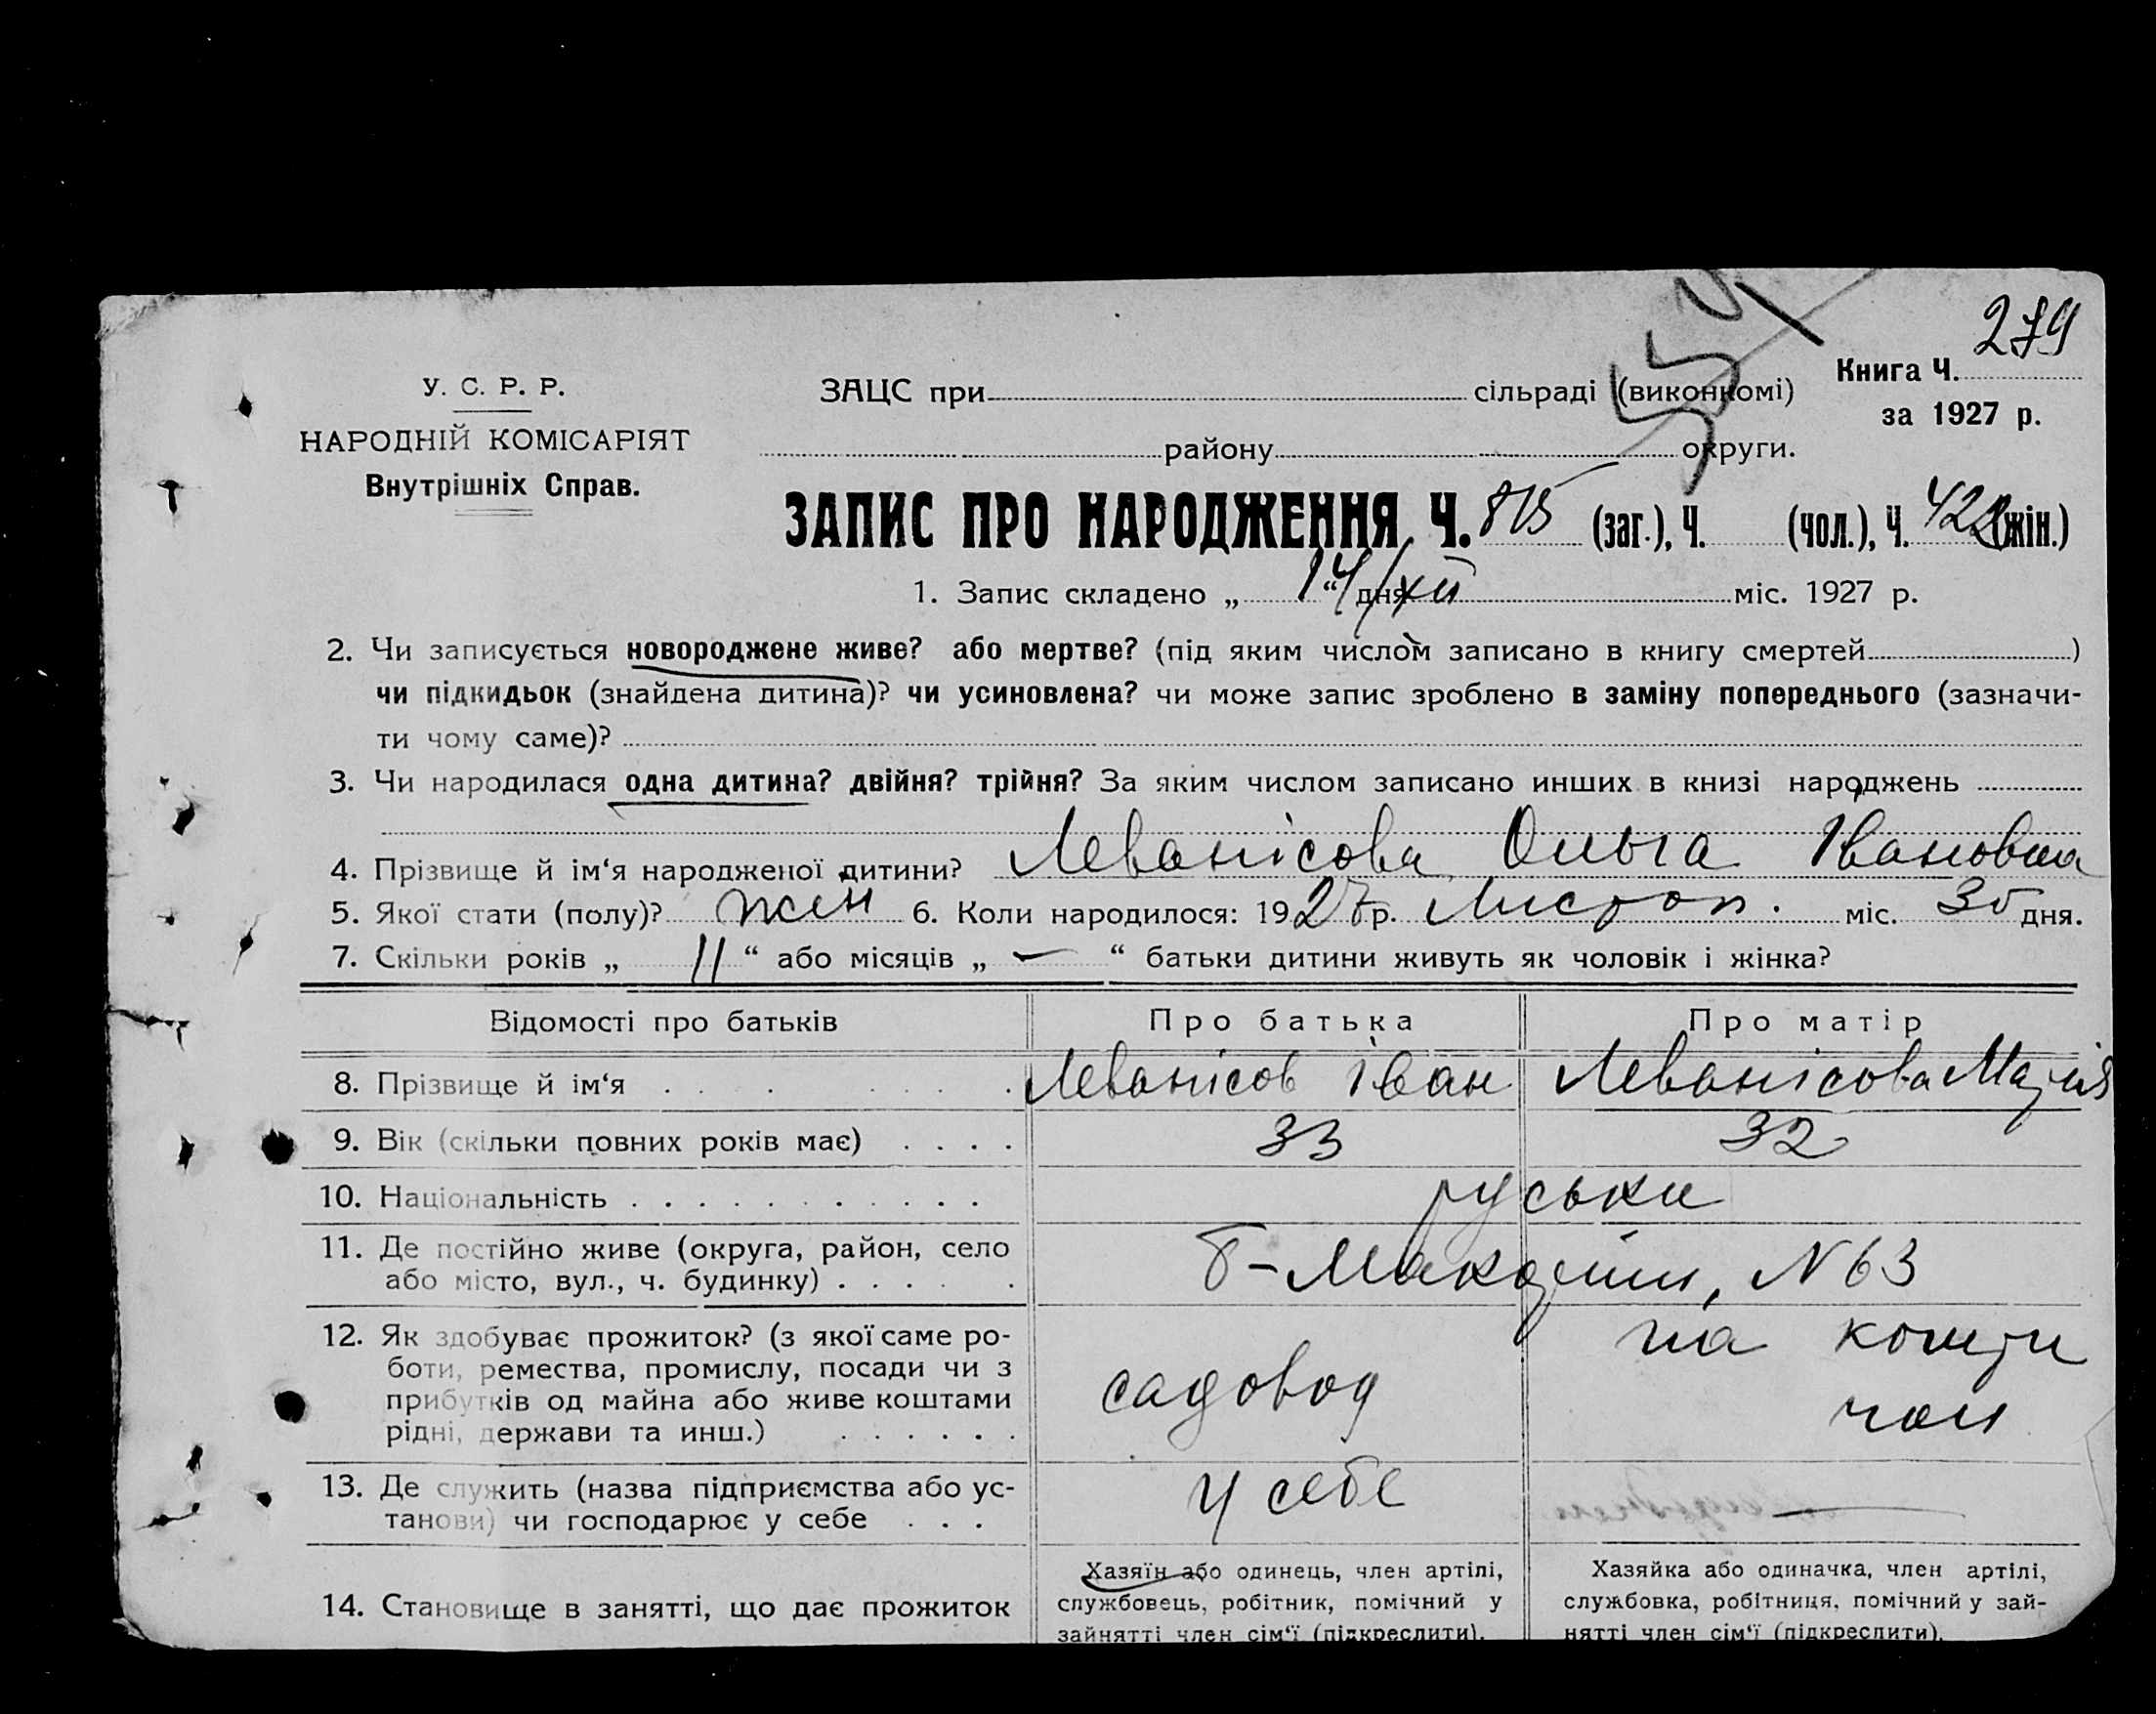 279
У. С. Р. Р.
НАРОДНІЙ КОМІСАРІЯТ
Внутрішніх Справ.
ЗАЦС при сільраді (виконкомі)
району округи.
Книга Ч.
за 1927 р.
ЗАПИС ПРО НАРОДЖЕННЯ Ч. 815 (заг.), Ч. (чол.), Ч. 422 (жін.)
1. Запис складено „ 14 “ дня XII міс. 1927 р.
2. Чи записується новороджене живе? або мертве? (під яким числом записано в книгу смертей )
чи підкидьок (знайдена дитина)? чи усиновлена? чи може запис зроблено в заміну попереднього (зазначи-
ти чому саме)?
3. Чи народилася одна дитина? двійня? трійня? За яким числом записано инших в книзі народжень
4. Прізвище й ім‘я народженої дитини? Леванісова Ольга Івановна
5. Якої стати (полу)? жен 6. Коли народилося: 1927 р. Листоп. міс. 30 дня.
7. Скільки років „ 11 “ або місяців „ — “ батьки дитини живуть як чоловік і жінка?
Відомості про батьків Про батька Про матір
8. Прізвище й ім‘я Леванісов Іван Леванісова Марія
9. Вік (скільки повних років має) 33 32
10. Національність руськи
11. Де постійно живе (округа, район, село
або місто, вул., ч. будинку) N 63
12. Як здобуває прожиток? (з якої саме ро-
боти, ремества, промислу, посади чи з
прибутків од майна або живе коштами
рідні, держави та инш.) садовод на кошти
чол
13. Де служить (назва підприємства або ус-
танови) чи господарює у себе у себе —
14. Становище в занятті, що дає прожиток
Хазяїн або одинець, член артілі,
службовець, робітник, помічний у
зайнятті член сім‘ї (підкреслити).
Хазяйка або одиначка, член артілі,
службовка, робітниця, помічний у зай-
нятті член сім‘ї (підкреслити).